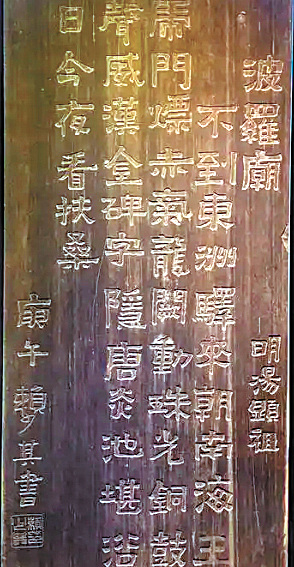 波羅廟 明湯顯祖
不到東洲驛來朝南海王
門熛赤氣龍闕動珠光銅鼓
聲威漢金碑字隱唐炎池堪浴
日今夜看扶桑
庚午賴少其書